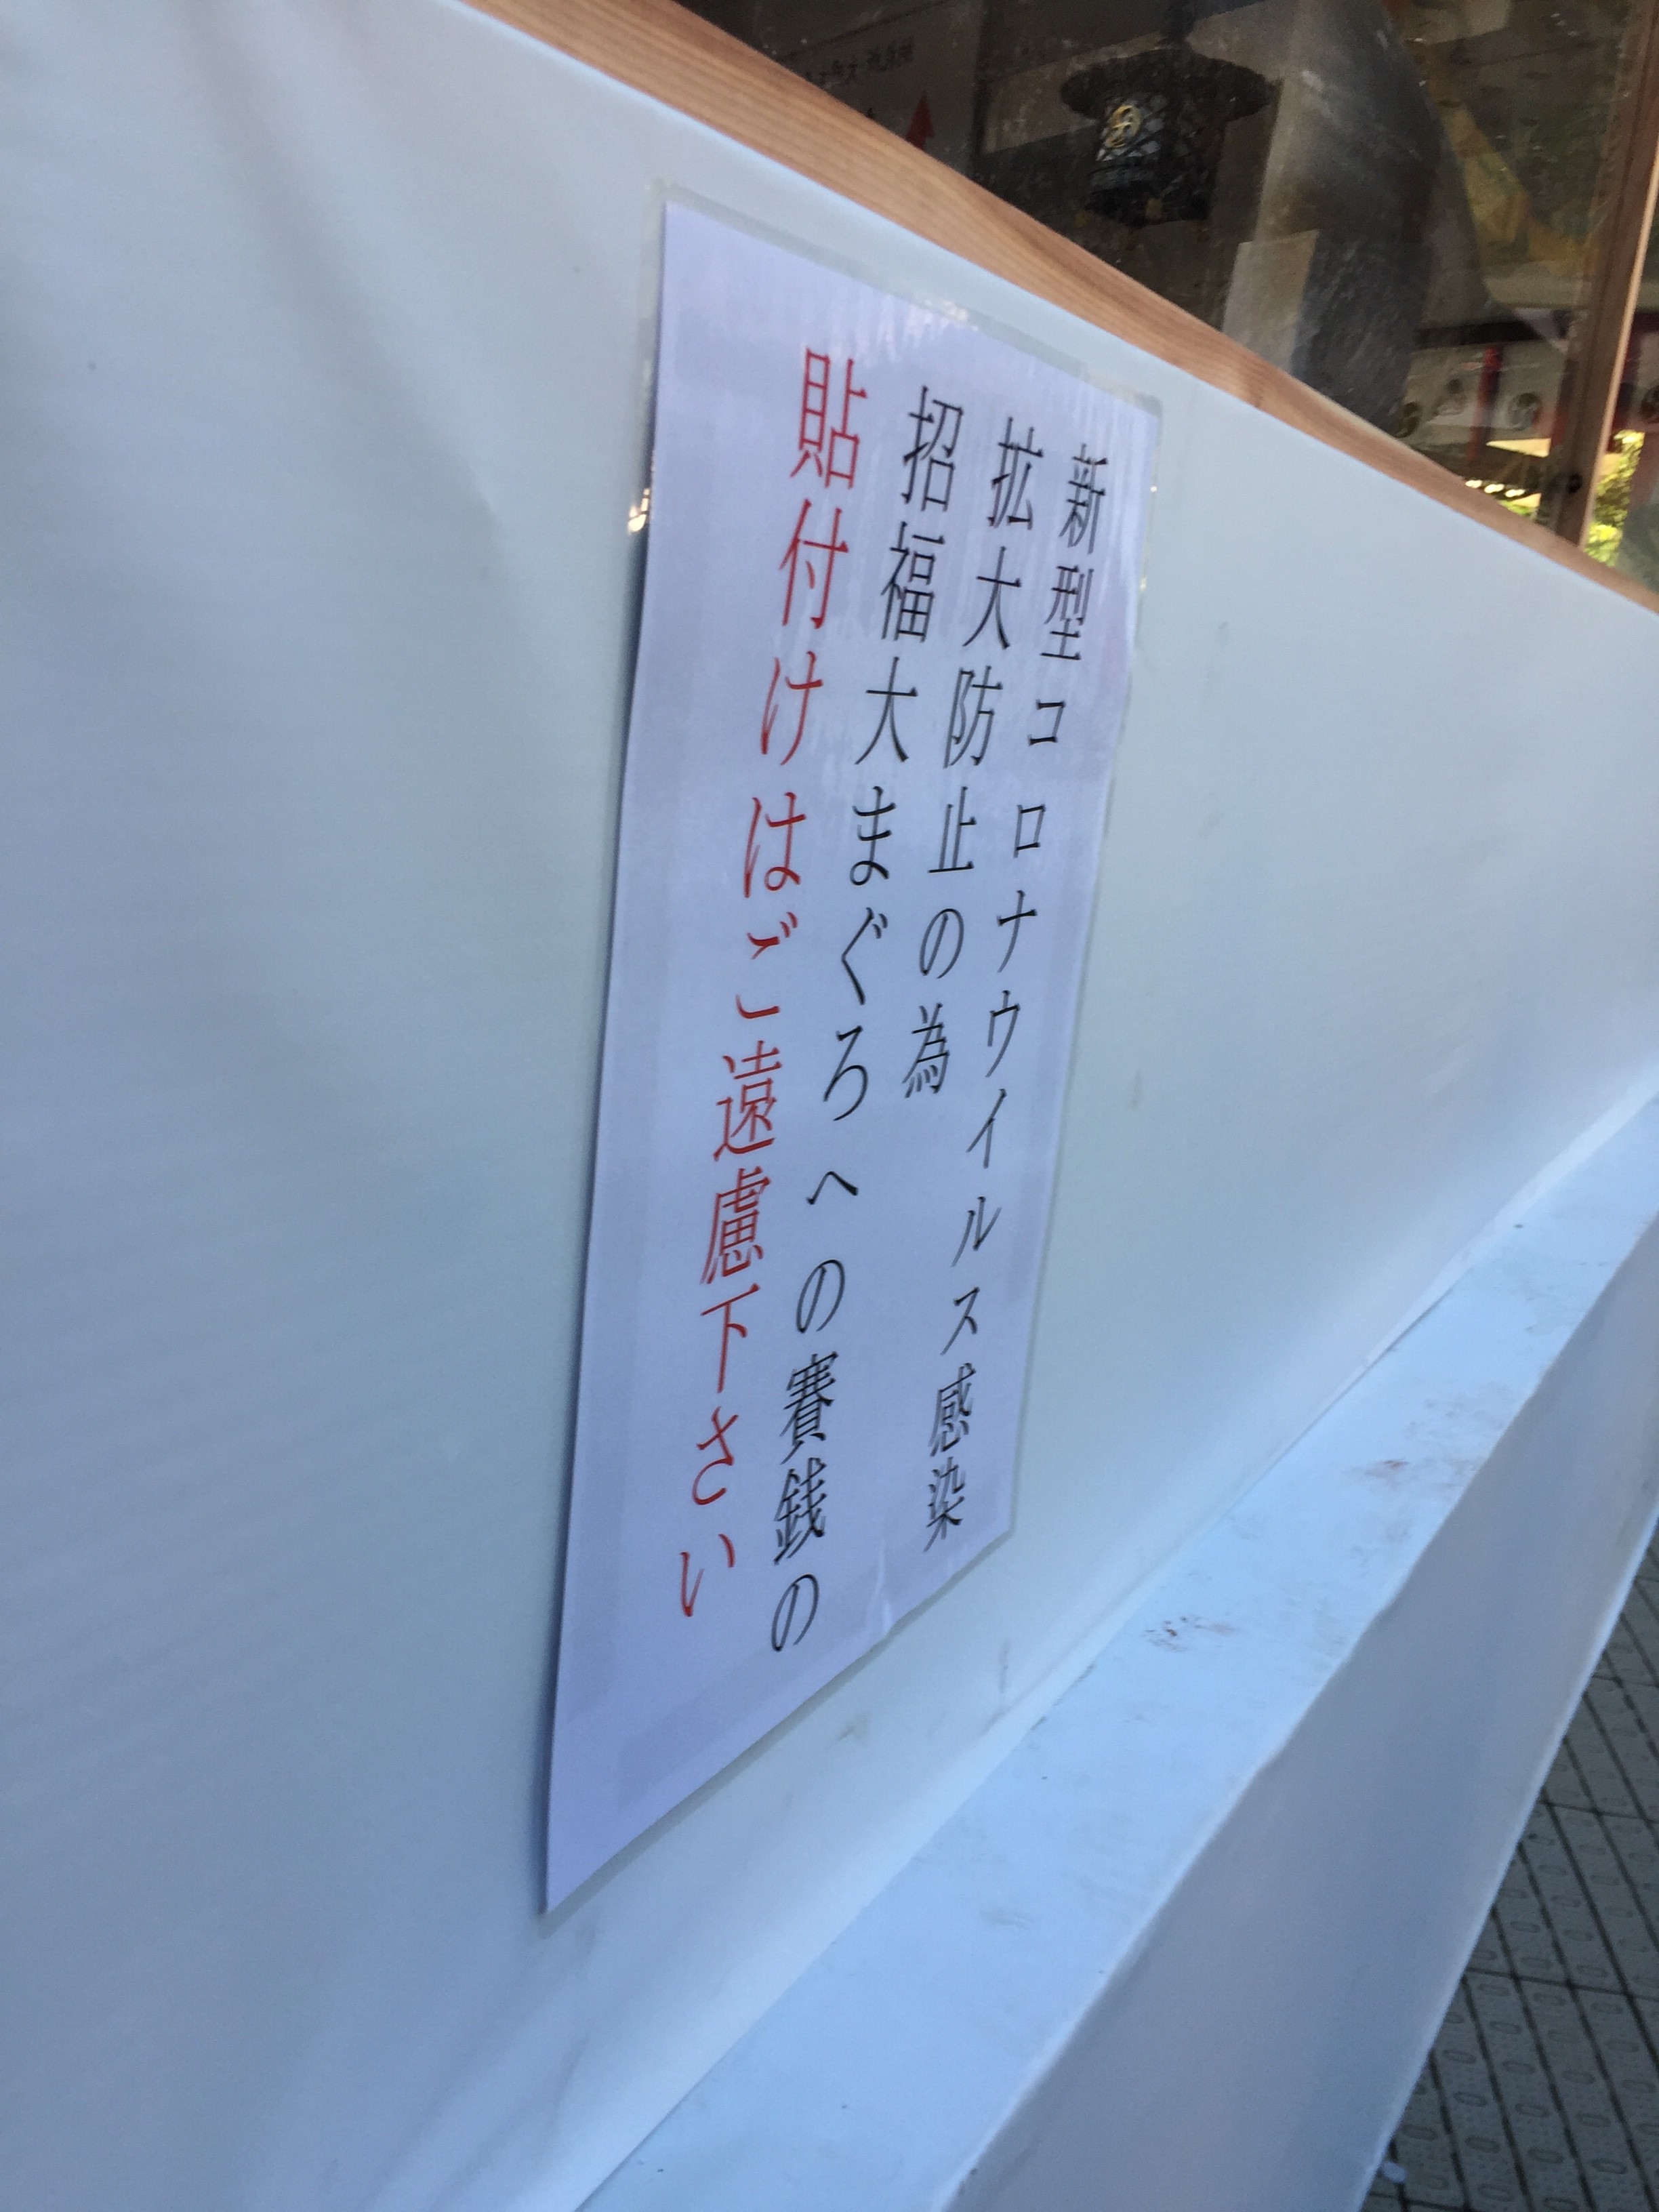 新型コロナウイルス感染
拡大防止の為
招福大まぐろへの賽銭の
貼付けはご遠慮下さい